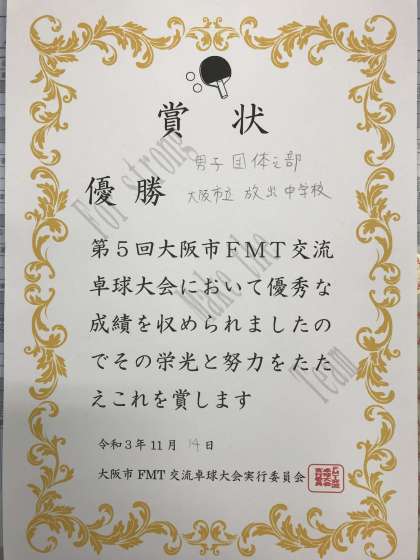 賞状
男子団体之部
優勝 大阪市立 放出中学校
第5回大阪市FMT交流
卓球大会において優秀な
成績を収められましたの
でその栄光と努力をたた
えこれを賞します
令和3年11月14日
大阪市FMT交流卓球大会実行委員会
For strong
Make the
Team